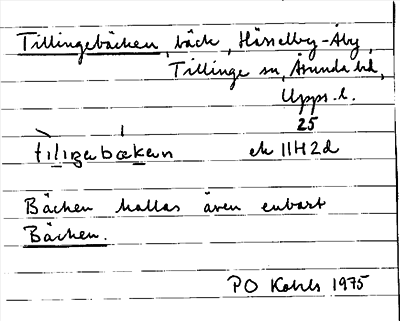 Tillingebäcken, bäck, Hässelby-Åby,
Tillinge sn, Åsunda hd,
Upps. l.
25
tilingebækæn ek 11H2d
Bäcken kallas även enbart
Bäcken.
PO Kohls 1975